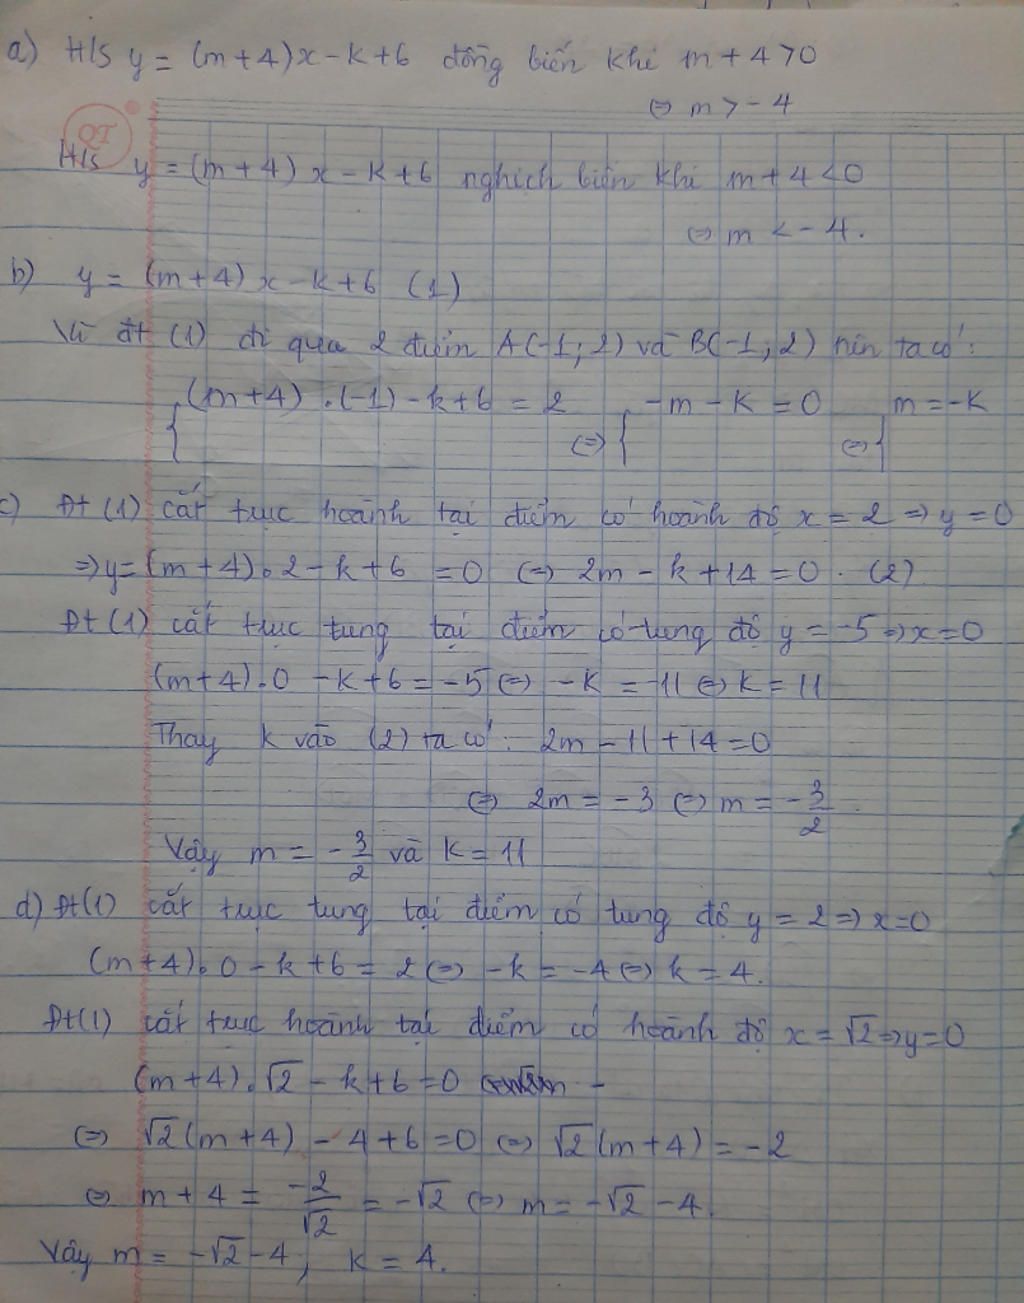 a) H/s y = (m+4)x - k + 6 đồng biến khi m + 4 > 0
⇔ m > - 4
QT
H/s y = (m+4) x - k + 6 nghịch biến khi m + 4 < 0
⇔ m < - 4.
b) y = (m+4) x - k + 6 (1)
Vì đt (1) đi qua 2 điểm A(-1; 2) và B(-1; 2) nên ta có:
{ (m+4) . (-1) - k + 6 = 2 ⇔ { -m - k = 0 ⇔ { m = -k
c) Đt (1) cắt trục hoành tại điểm có hoành độ x = 2 ⇒ y = 0
⇒ y = (m+4) . 2 - k + 6 = 0 ⇔ 2m - k + 14 = 0 . (2)
Đt (1) cắt trục tung tại điểm có tung độ y = -5 ⇒ x = 0
(m+4) . 0 - k + 6 = -5 ⇔ -k = -11 ⇔ k = 11
Thay k vào (2) ta có: 2m - 11 + 14 = 0
⇔ 2m = -3 ⇔ m = -3/2.
Vậy m = -3/2 và k = 11
d) Đt(1) cắt trục tung tại điểm có tung độ y = 2 ⇒ x = 0
(m+4) . 0 - k + 6 = 2 ⇔ -k = -4 ⇔ k = 4.
Đt(1) cắt trục hoành tại điểm có hoành độ x = √2 ⇒ y = 0
(m+4) . √2 - k + 6 = 0
⇔ √2(m+4) - 4 + 6 = 0 ⇔ √2(m+4) = -2
⇔ m + 4 = -2/√2 = -√2 ⇔ m = -√2 - 4.
Vậy m = -√2 - 4; k = 4.